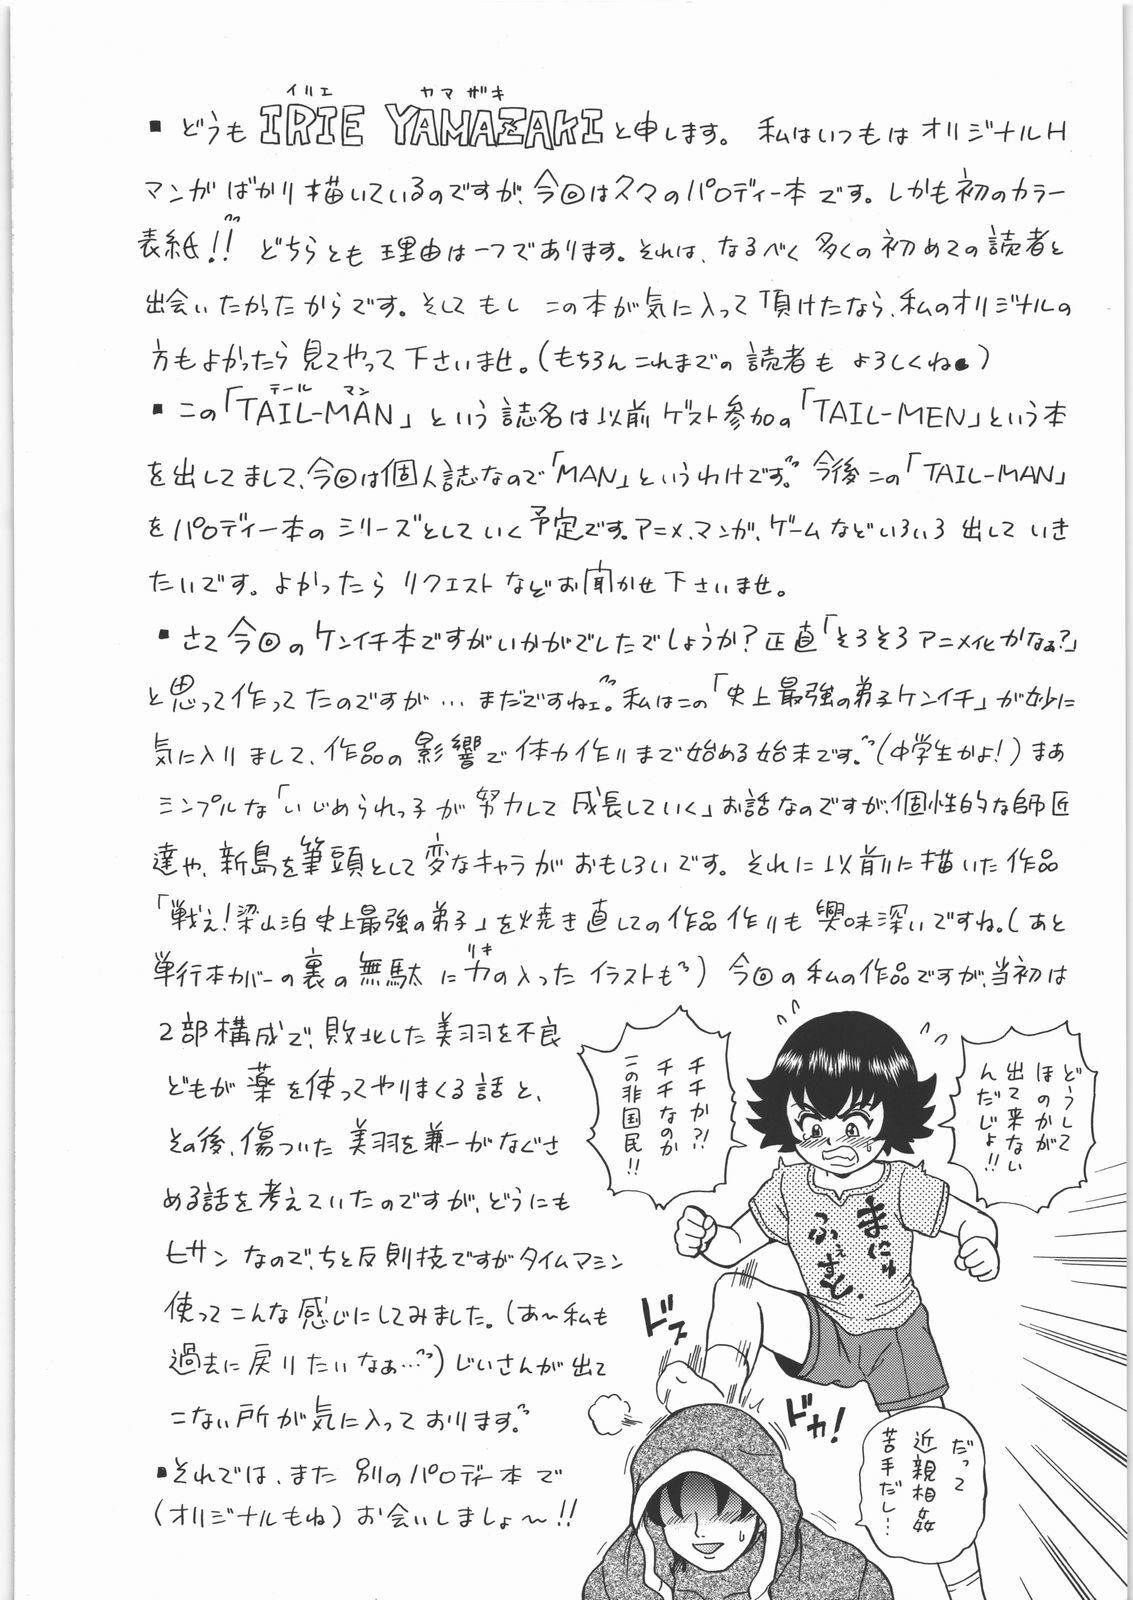 イリエ ヤマザキ
▪ どうも IRIE YAMAZAKI と申します。 私はいつもはオリジナルH
マンガばかり描いているのですが、今回は久々のパロディー本です。しかも初のカラー
表紙!! どちらとも理由は一つであります。それは、なるべく多くの初めての読者と
出会いたかったからです。そしてもし この本が気に入って頂けたなら、私のオリジナルの
方もよかったら見てやって下さいませ。(もちろんこれまでの読者もよろしくね)
テール マン
▪ この「TAIL-MAN」という誌名は以前ゲスト参加の「TAIL-MEN」という本
を出してまして、今回は個人誌なので「MAN」というわけです。今後この「TAIL-MAN」
をパロディー本のシリーズとしていく予定です。アニメ、マンガ、ゲームなどいろいろ出していき
たいです。よかったらリクエストなどお聞かせ下さいませ。
▪ さて今回のケンイチ本ですがいかがでしたでしょうか?正直「そろそろアニメ化かなぁ?」
と思って作ってたのですが…まだですねェ。私はこの「史上最強の弟子ケンイチ」が妙に
気に入りまして、作品の影響で体力作りまで始める始末です。(中学生かよ!)まあ
シンプルな「いじめられっ子が努力して成長していく」お話なのですが、個性的な師匠
達や、新島を筆頭として変なキャラがおもしろいです。それに以前に描いた作品
「戦え!梁山泊史上最強の弟子」を焼き直しての作品作りも興味深いですね。(あと
単行本カバーの裏の無駄に力の入ったイラストも)今回の私の作品ですが、当初は
リキ
2部構成で、敗北した美羽を不良
どもが薬を使ってやりまくる話と、
その後、傷ついた美羽を兼一がなぐさ
める話を考えていたのですが、どうにも
ヒサンなので、ちと反則技ですがタイムマシン
使ってこんな感じにしてみました。(あ～私も
過去に戻りたいなぁ…)じいさんが出て
こない所が気に入っております。
▪ それでは、また別のパロディー本で
(オリジナルもね)お会いしましょ～!!
どーうして
ほのかが
出て来ない
んだじょ!!
チチか?!
チチなのか
この非国民!!
まにゅ
ふぇすと。
ドス
ドカ!
だって
近親相姦
苦手だし…